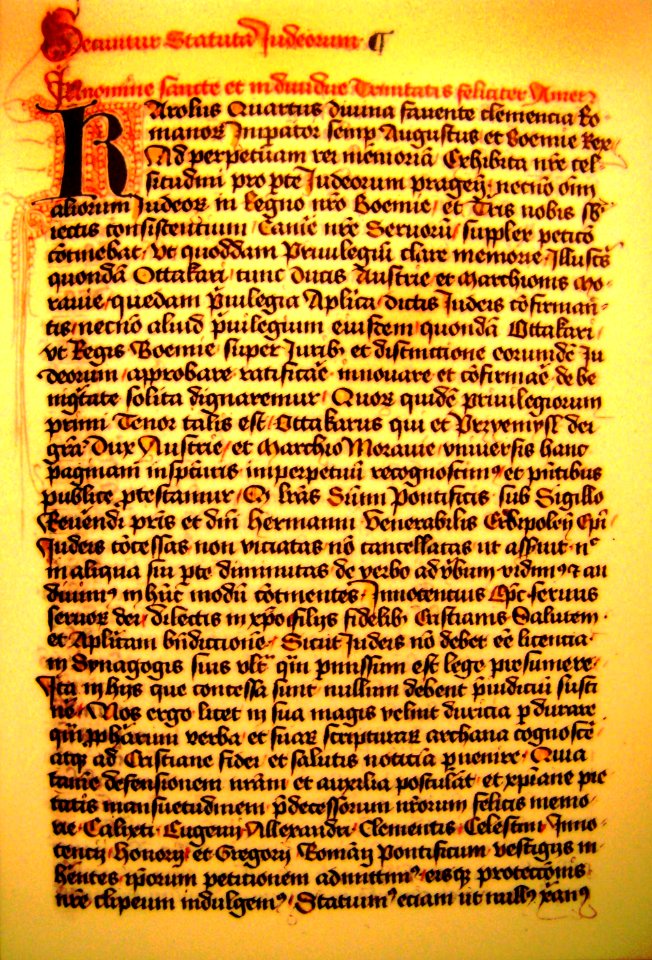 Secuntur Statuta Judeorum ¶
In nomine sancte et individue Trinitatis feliciter Amen
Karolus Quartus divina favente clementia Ro
manoꝝ Imperator semp Augustus et Boemie Rex
Ad perpetuam rei memoriā Exhibita nr̄e cel
situdini pro pte Judeorum pragen̄ necnō om̄
aliorum Judeoꝝ in Regno nr̄o Boemie et Tr̄is nobis sb̄
iectis consistentium suppler peticō
cōtinebat Ut quoddam Privilegiū clare memorie Illustr̄
quondā Ottakari tunc Ducis Austrie et Marchionis Mo
ravie quedam p̄vilegia Ap̄lica dictis Judeis cōfirman
tis necnō aliud p̄vilegium eiusdem quondā Ottakari
ut Regis Boemie super Jurib et distinctione eorundē Ju
deorum approbare ratificāe innovare et cōfirmāe de be
nigtate solita dignaremur Quoꝝ quidē privilegiorum
primi Tenor talis est Ottakarus qui et Przemysl dei
grā Dux Austrie et Marchio Moravie universis hanc
paginam inspturis imperpetuū recognoscimꝰ et pn̄tibus
publice ꝓtestamur lr̄as Sūmi Pontificis sub Sigillo
Reūendi pr̄is et dn̄i Hermanni Venerabilis Erbipolen̄ Ep̄i
Judeis cōcessas non viciatas nō cancellatas ut assuit nᶜ
in aliqua sui pte diminutas de verbo ad v̄bum vidimꝰ et au
divimꝰ in hūc modū cōtinentes Innocentius Ep̄c servus
servoꝝ dei dilectis in xp̄o filijs fidelibꝰ Cristianis Salutem
et Ap̄licam bn̄dictionē Sicut Judeis nō debet eē licentia
in Synagogis suis ult qm̄ pmissum est lege presumere
Ita in hijs que concessa sunt nullum debent p̄iudiciū susti
nē Nos ergo licet in sua magis velint duricia pdurare
qm̄ ꝓphetarum verba et suaꝝ scripturaꝝ archana cognoscē
atqꝫ ad Cristiane fidei et salutis noticiā pvenire Quia
tamē defensionem nr̄am et auxilia postulāt et xp̄iane pie
tatis mansuetudinem p̄decessorum nr̄orum felicis memo
rie Calixti Eugenij Allexandri Clementis Celestini Inno
tencij Honorij et Gregorij Romān̄ Pontificum vestigijs in
herentes ip̄orum petitionem admittimꝰ eisqꝫ protectiōis
nr̄e clipeum indulgemꝰ Statuimꝰ etiam ut nullꝰ xp̄ianꝰ